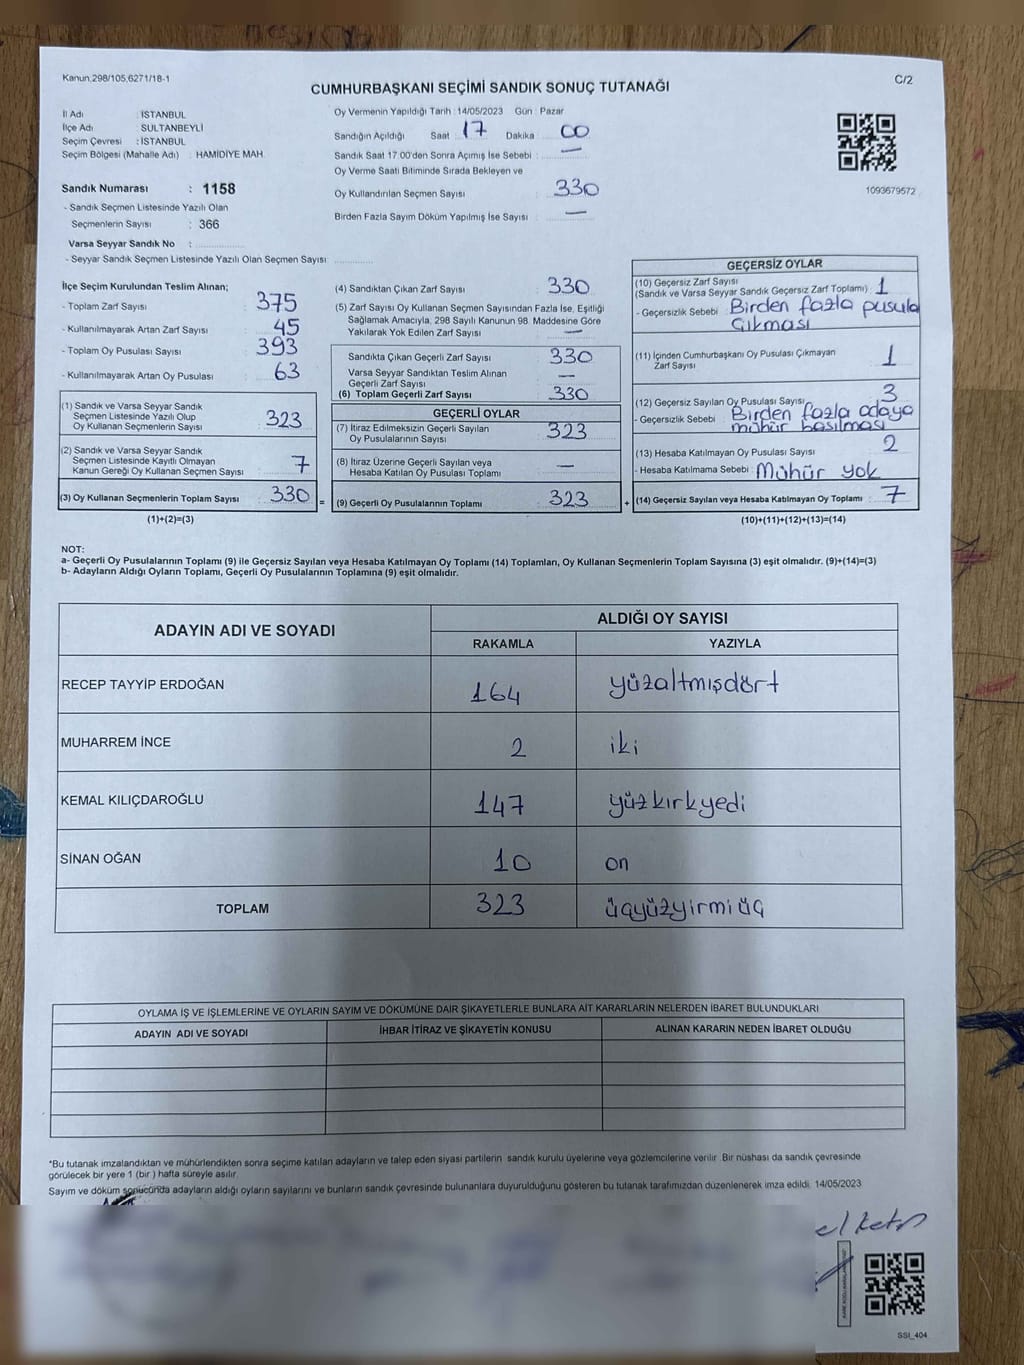 Kanun,298/105,6271/18-1
C/2
CUMHURBAŞKANI SEÇİMİ SANDIK SONUÇ TUTANAĞI
İl Adı : İSTANBUL
İlçe Adı : SULTANBEYLİ
Seçim Çevresi : İSTANBUL
Seçim Bölgesi (Mahalle Adı) : HAMİDİYE MAH
Sandık Numarası : 1158
- Sandık Seçmen Listesinde Yazılı Olan
Seçmenlerin Sayısı : 366
Varsa Seyyar Sandık No :
- Seyyar Sandık Seçmen Listesinde Yazılı Olan Seçmen Sayısı
Oy Vermenin Yapıldığı Tarih : 14/05/2023 Gün : Pazar
Sandığın Açıldığı Saat 17 Dakika 00
Sandık Saat 17.00'den Sonra Açımış İse Sebebi : —
Oy Verme Saati Bitiminde Sırada Bekleyen ve
Oy Kullandırılan Seçmen Sayısı : 330
Birden Fazla Sayım Döküm Yapılmış İse Sayısı : —
1093679572
İlçe Seçim Kurulundan Teslim Alınan;
- Toplam Zarf Sayısı : 375
- Kullanılmayarak Artan Zarf Sayısı : 45
- Toplam Oy Pusulası Sayısı : 393
- Kullanılmayarak Artan Oy Pusulası : 63
(1) Sandık ve Varsa Seyyar Sandık
Seçmen Listesinde Yazılı Olup
Oy Kullanan Seçmenlerin Sayısı : 323
(2) Sandık ve Varsa Seyyar Sandık
Seçmen Listesinde Kayıtlı Olmayan
Kanun Gereği Oy Kullanan Seçmen Sayısı : 7
(3) Oy Kullanan Seçmenlerin Toplam Sayısı : 330
(1)+(2)=(3)
=
(4) Sandıktan Çıkan Zarf Sayısı : 330
(5) Zarf Sayısı Oy Kullanan Seçmen Sayısından Fazla İse, Eşitliği
Sağlamak Amacıyla, 298 Sayılı Kanunun 98. Maddesine Göre
Yakılarak Yok Edilen Zarf Sayısı : —
Sandıkta Çıkan Geçerli Zarf Sayısı : 330
Varsa Seyyar Sandıktan Teslim Alınan
Geçerli Zarf Sayısı : —
(6) Toplam Geçerli Zarf Sayısı : 330
GEÇERLİ OYLAR
(7) İtiraz Edilmeksizin Geçerli Sayılan
Oy Pusulalarının Sayısı : 323
(8) İtiraz Üzerine Geçerli Sayılan veya
Hesaba Katılan Oy Pusulası Toplamı : —
(9) Geçerli Oy Pusulalarının Toplamı : 323
+
GEÇERSİZ OYLAR
(10) Geçersiz Zarf Sayısı
(Sandık ve Varsa Seyyar Sandık Geçersiz Zarf Toplamı) : 1
- Geçersizlik Sebebi : Birden fazla pusula
Çıkması
(11) İçinden Cumhurbaşkanı Oy Pusulası Çıkmayan
Zarf Sayısı : 1
(12) Geçersiz Sayılan Oy Pusulası Sayısı : 3
- Geçersizlik Sebebi : Birden fazla adaya
mühür basılması
(13) Hesaba Katılmayan Oy Pusulası Sayısı : 2
- Hesaba Katılmama Sebebi : Mühür yok
(14) Geçersiz Sayılan veya Hesaba Katılmayan Oy Toplamı : 7
(10)+(11)+(12)+(13)=(14)
NOT:
a- Geçerli Oy Pusulalarının Toplamı (9) ile Geçersiz Sayılan veya Hesaba Katılmayan Oy Toplamı (14) Toplamları, Oy Kullanan Seçmenlerin Toplam Sayısına (3) eşit olmalıdır. (9)+(14)=(3)
b- Adayların Aldığı Oyların Toplamı, Geçerli Oy Pusulalarının Toplamına (9) eşit olmalıdır.
ADAYIN ADI VE SOYADI
ALDIĞI OY SAYISI
RAKAMLA YAZIYLA
RECEP TAYYİP ERDOĞAN 164 yüzaltmışdört
MUHARREM İNCE 2 iki
KEMAL KILIÇDAROĞLU 147 yüzkırkyedi
SİNAN OĞAN 10 on
TOPLAM 323 üçyüzyirmiüç
OYLAMA İŞ VE İŞLEMLERİNE VE OYLARIN SAYIM VE DÖKÜMÜNE DAİR ŞİKAYETLERLE BUNLARA AİT KARARLARIN NELERDEN İBARET BULUNDUKLARI
ADAYIN ADI VE SOYADI İHBAR İTİRAZ VE ŞİKAYETİN KONUSU ALINAN KARARIN NEDEN İBARET OLDUĞU
*Bu tutanak imzalandıktan ve mühürlendikten sonra seçime katılan adayların ve talep eden siyasi partilerin sandık kurulu üyelerine veya gözlemcilerine verilir. Bir nüshası da sandık çevresinde
görülecek bir yere 1 (bir ) hafta süreyle asılır.
Sayım ve döküm sonucunda adayların aldığı oyların sayılarını ve bunların sandık çevresinde bulunanlara duyurulduğunu gösteren bu tutanak tarafımızdan düzenlenerek imza edildi. 14/05/2023
SSI_404